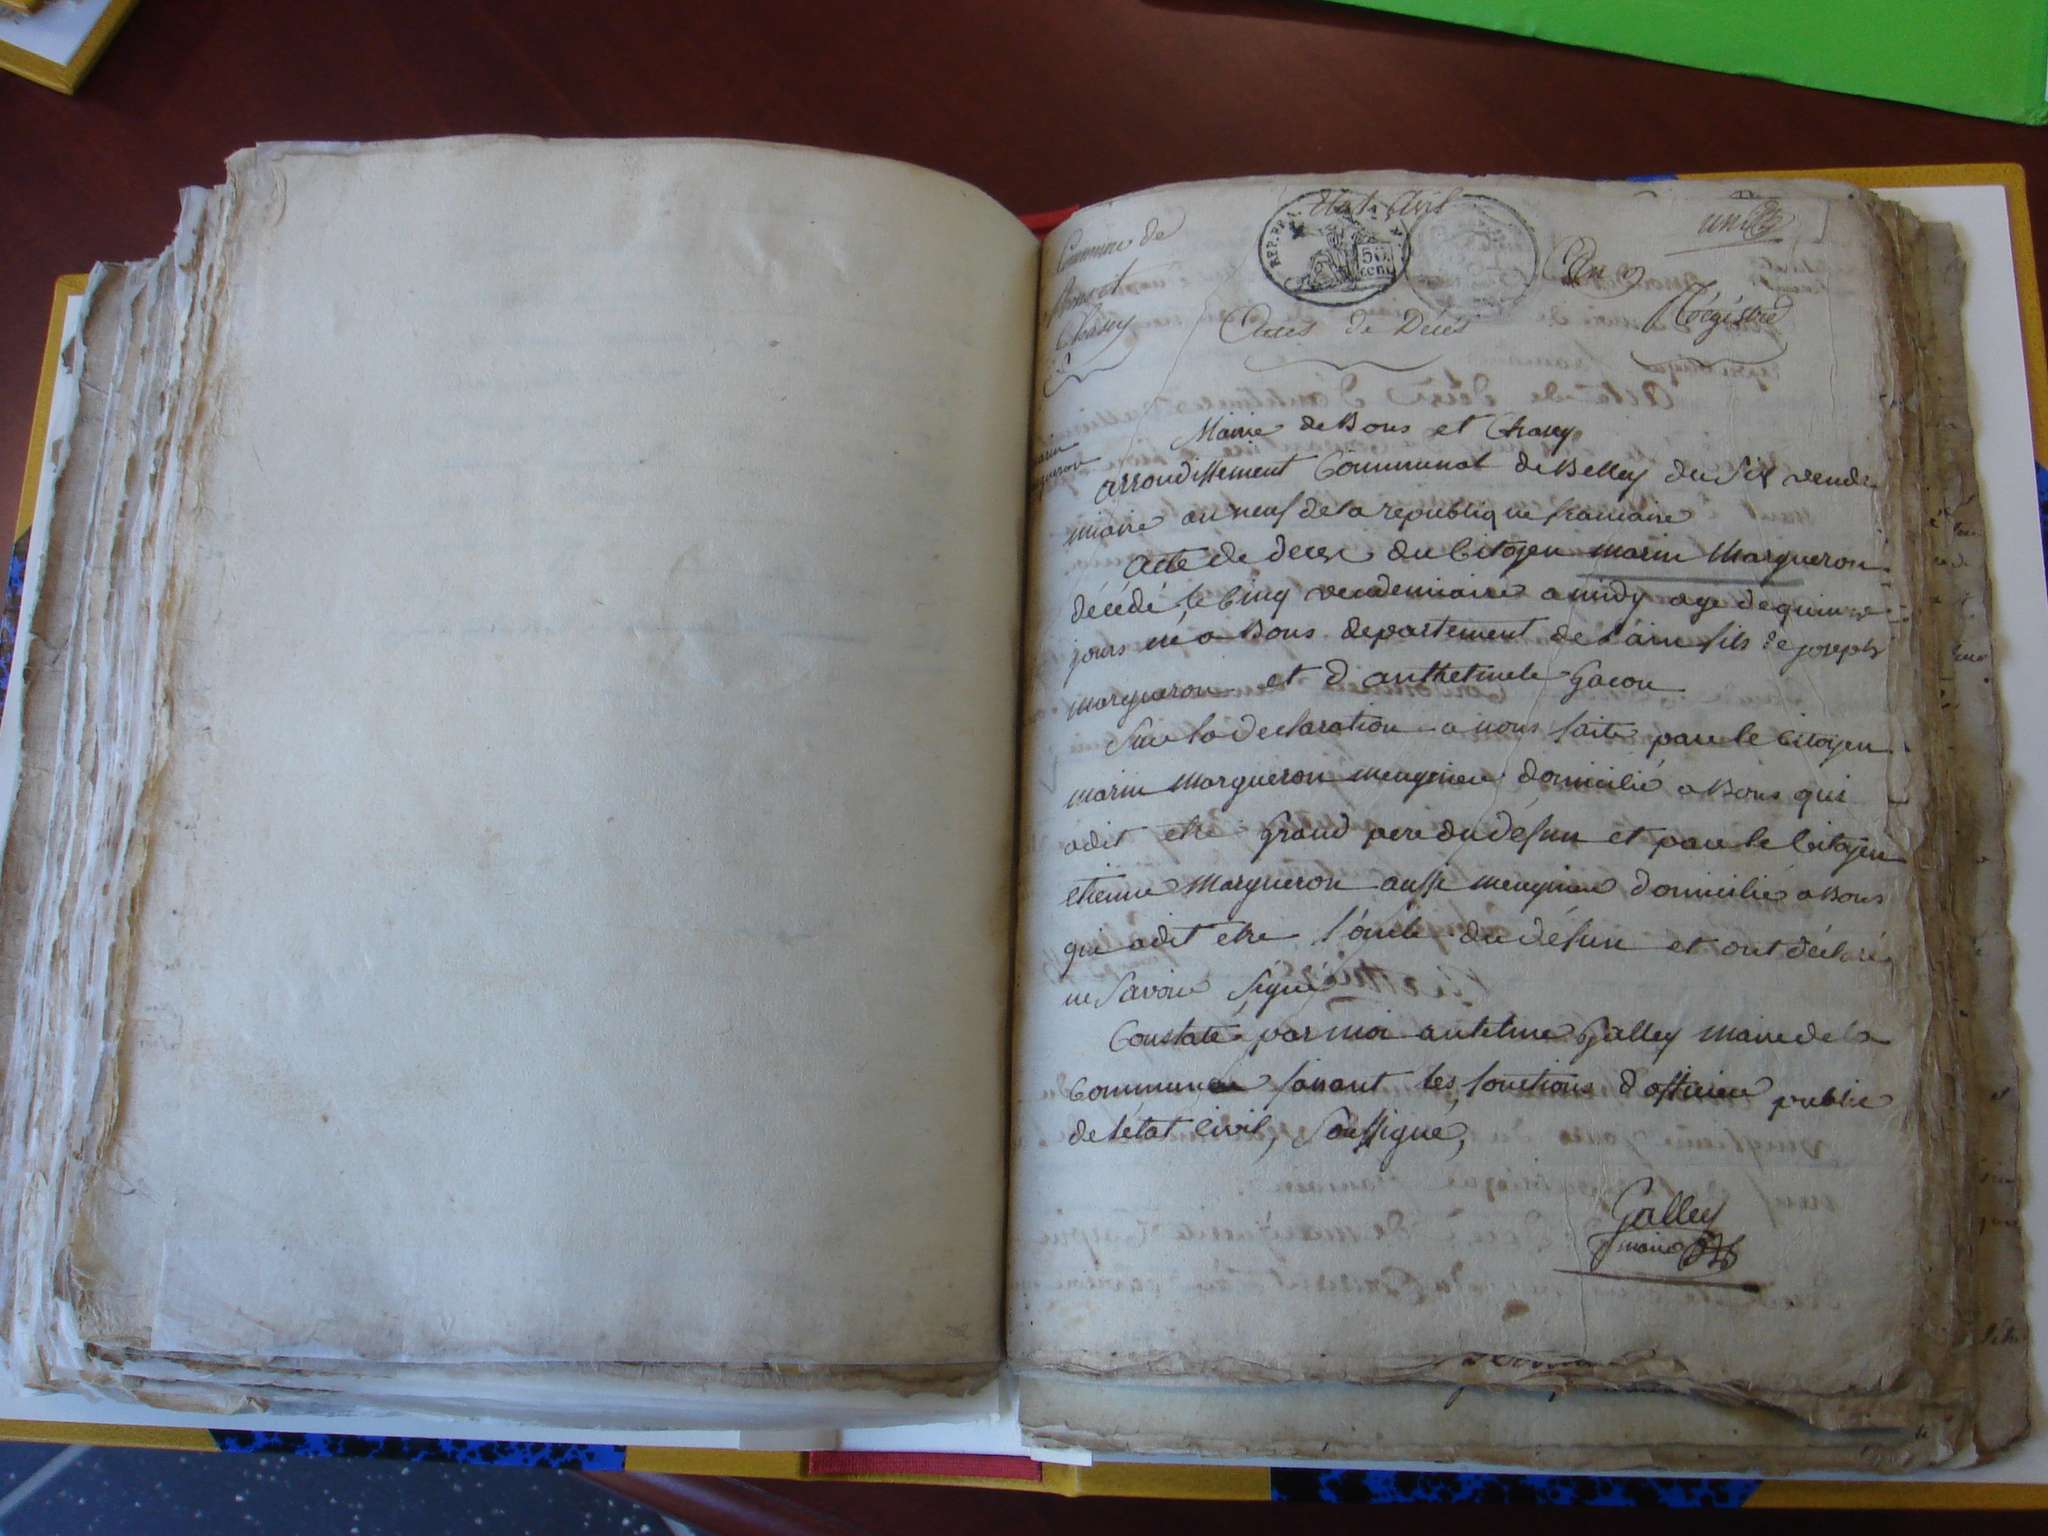 Etat Civil
Commune de
Bons et
Chasey
REP. FRA.
50
cent
An 9
Régistre
Actes de Décés
Mairie de Bons et Chasey
arin
rgueron
arrondissement Communal de Belley du six vendé
miaire an neuf de la republique francaise
Acte de deces du Citoyen marin Margueron
décédé le Cinq vendemiaire a midy age de quinze
jours né a Bons departement de l'ain fils de joseph
margueron et d'anthelmete Gacon
Sur la declaration a nous faite par le Citoyen
marin Margueron domicilié a Bons qui
a dit etre grand pere du défun et par le Citoyen
etienne Margueron aussi domicilié a Bons
qui a dit etre l'oncle du défun et ont déclaré
ne Savoir Signé
Constaté par moi antelme Galley Maire de la
Commune faisant les fonctions d'officier public
de letat Civil, Soussigné,
Galley
maire